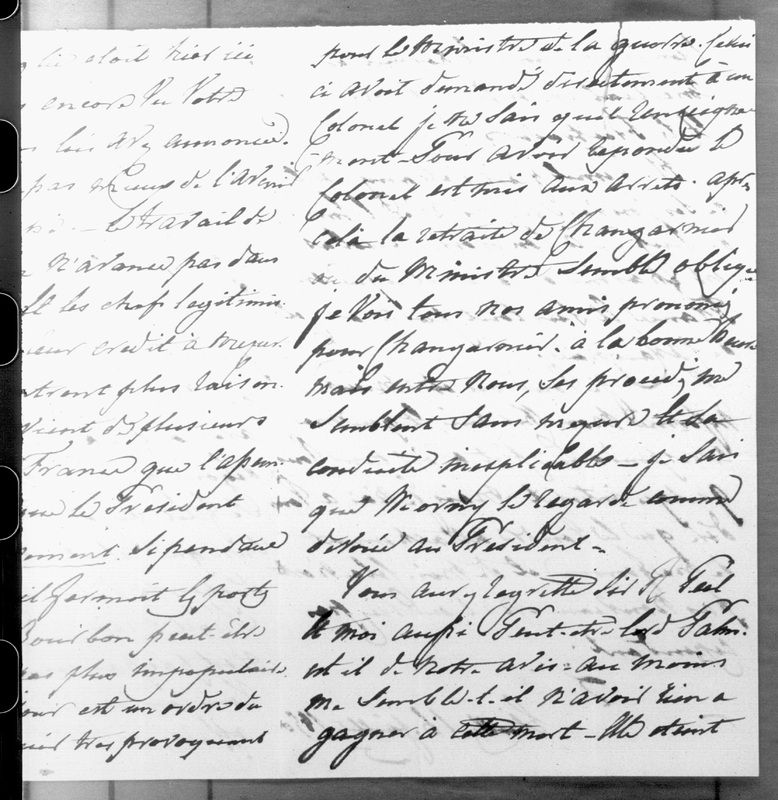 étoit hier ici
encore vu Votre
lui avez annoncé.
pas mieux de l'avenir
— Le travail de
n'avance pas dans
et les chefs legitimis-
leur credit à mesur.
plus raison.
vient de plusieurs
France que l'assem.
que le Président
si pendant
il fermoit les portes
Bourbon peut-être
pas plus impopulaire
jour est un ordre du
très provoquant
pour le Ministre de la guerre. Celui
ci avoit demandé directement à un
Colonel je ne sais quel renseigne-
ment. Pour avoir repondu le
Colonel est mis aux arrets. après
cela la retraite de Changarnier
ou du Ministre semble obligée
je vois tous nos amis prononcés
pour Changarnier. à la bonne heure
mais entre nous, ses procedés me
semblent sans mesure et sa
conduite inexplicable — je sais
que Morny le regarde comme
dévoué au Président —
Vous aurez regretté Sir R Peel
et moi aussi Peut-etre lord Palm.
est il de notre avis = au moins
me semble-t-il n'avoir rien a
gagner à cette mort — Ils etoient